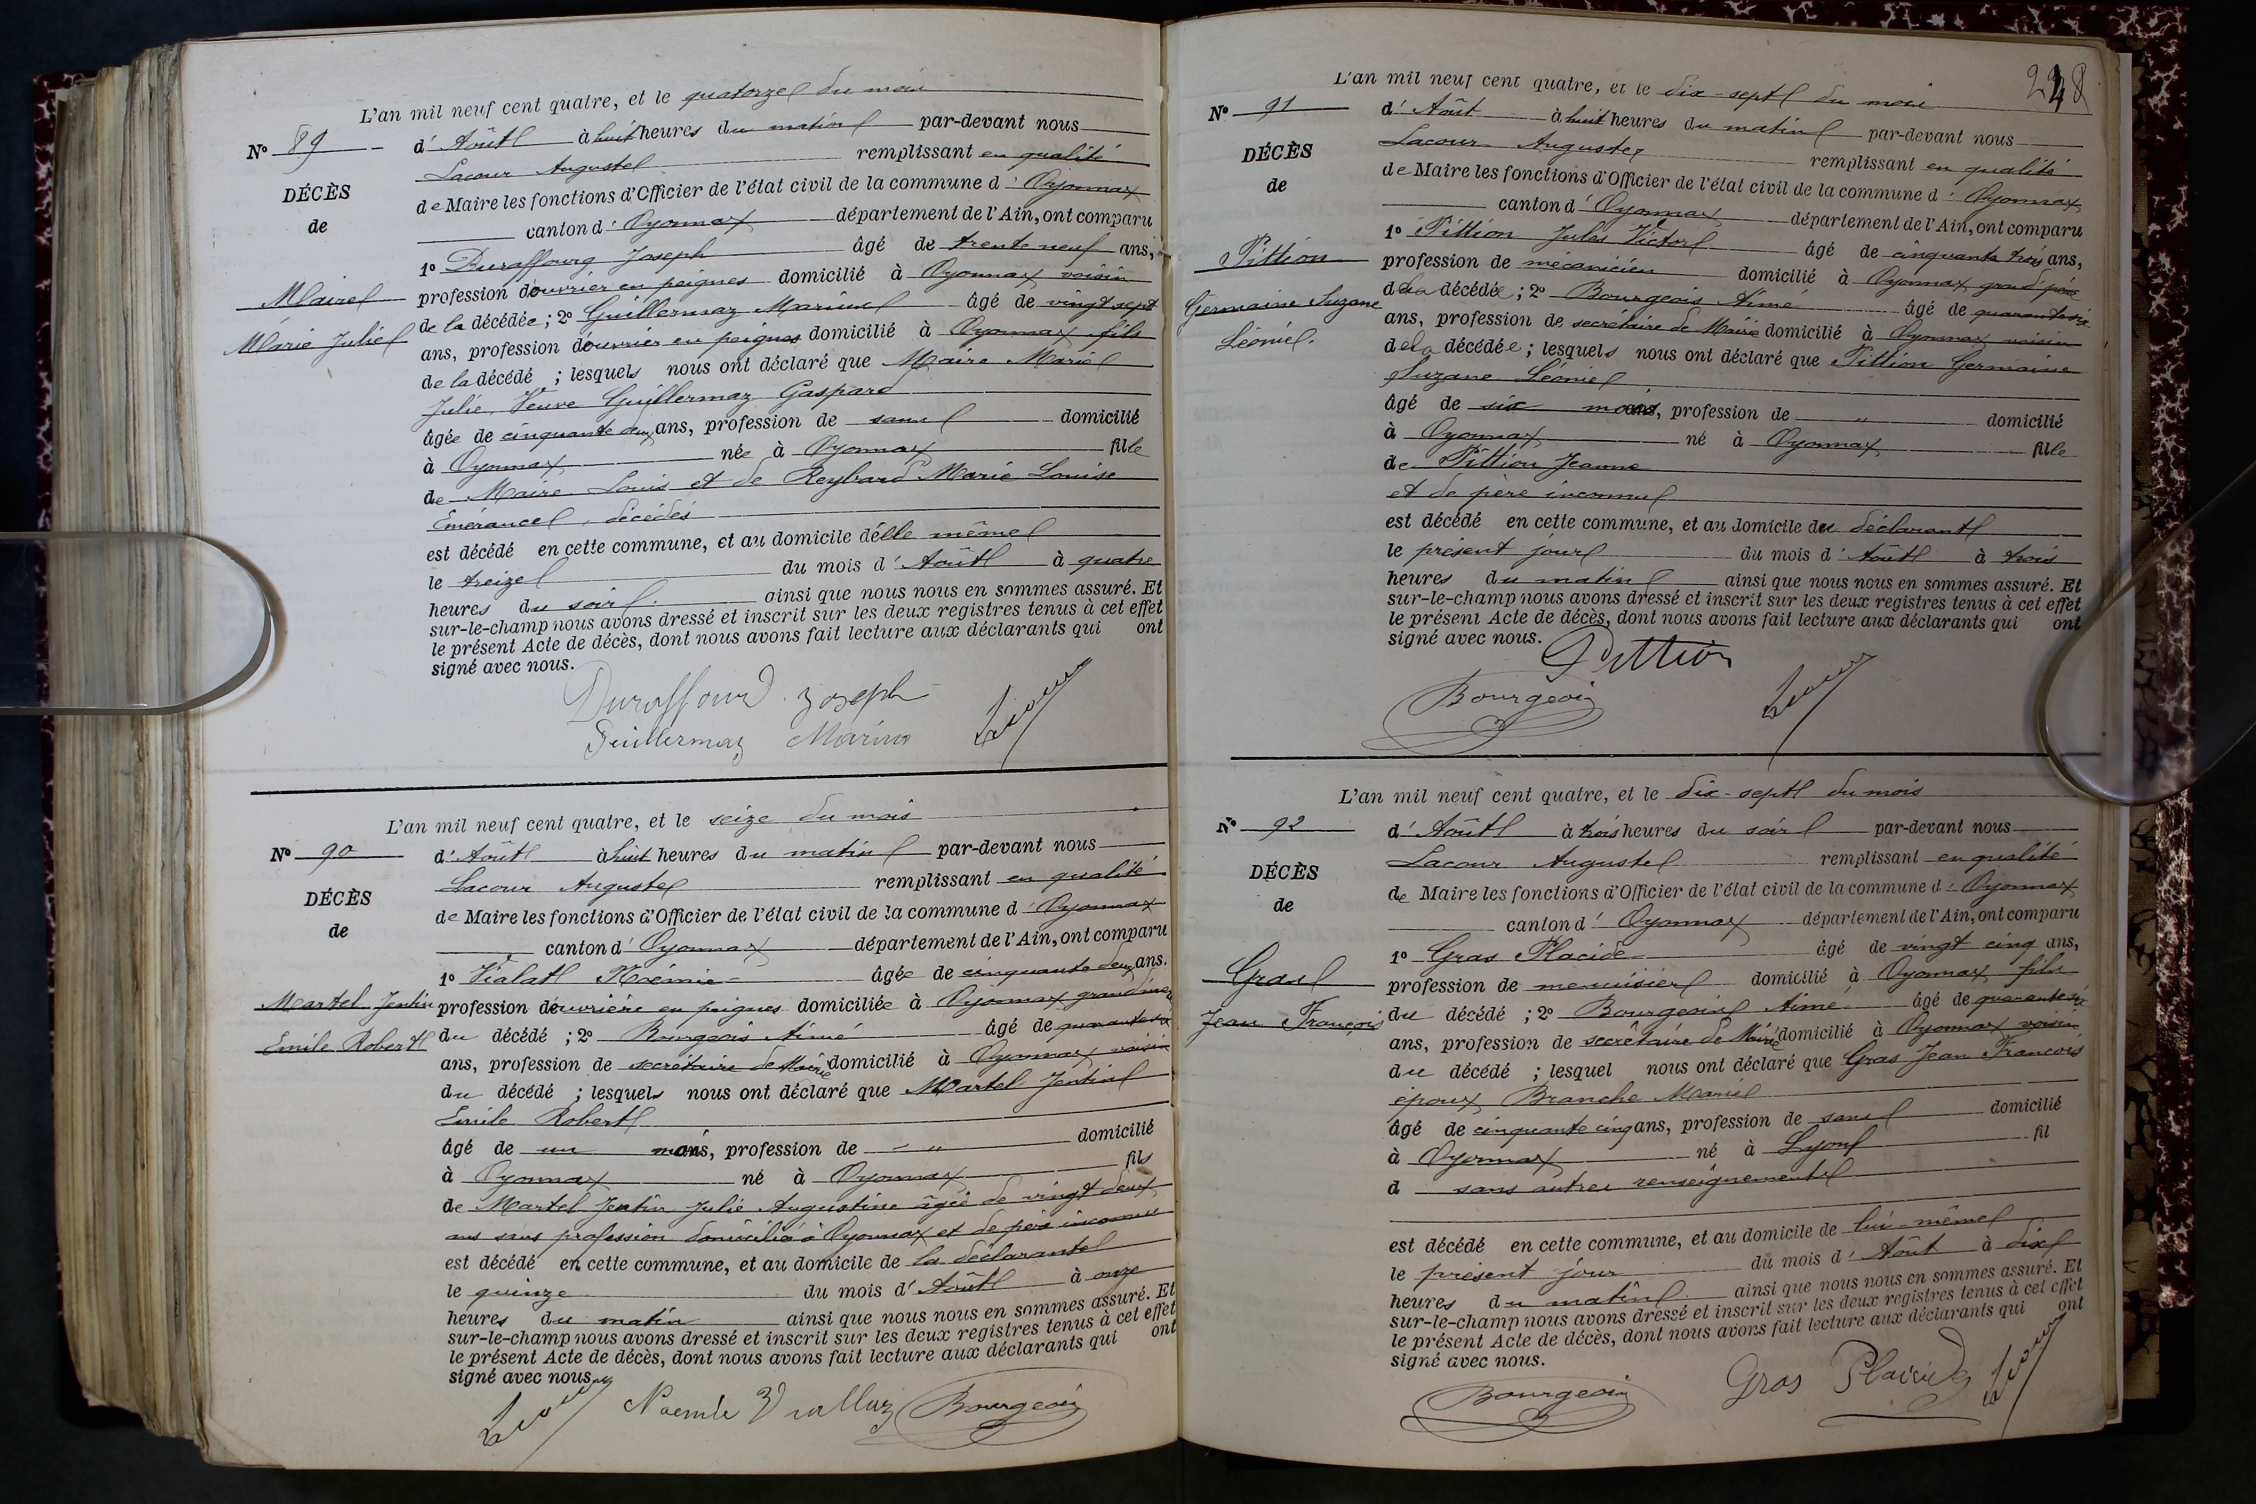 L'an mil neuf cent quatre, et le quatorze du mois
N° 89
d' Août à huit heures du matin par-devant nous
Lacour Auguste remplissant en qualité
DÉCÈS
de Maire les fonctions d'Officier de l'état civil de la commune d' Oyonnax
de
canton d' Oyonnax département de l'Ain, ont comparu
1° Duraffourg Joseph âgé de trente neuf ans,
Maire
profession d'ouvrier en peignes domicilié à Oyonnax voisin
de la décédée ; 2° Guillermaz Marius âgé de vingt sept
Marie Julie
ans, profession d'ouvrier en peignes domicilié à Oyonnax fils
de la décédé ; lesquels nous ont déclaré que Maire Marie
Julie, Veuve Guillermaz Gaspard
âgée de cinquante deux ans, profession de sans domicilié
à Oyonnax née à Oyonnax fille
de Maire Louis et de Reybard Marie Louise
Emérance, décédés
est décédé en cette commune, et au domicile d'elle même
le treize du mois d' Août à quatre
heures du soir ainsi que nous nous en sommes assuré. Et
sur-le-champ nous avons dressé et inscrit sur les deux registres tenus à cet effet
le présent Acte de décès, dont nous avons fait lecture aux déclarants qui ont
signé avec nous.
Duraffourd Joseph
Guillermaz Marius
L'an mil neuf cent quatre, et le seize du mois
N° 90
d' Août à huit heures du matin par-devant nous
Lacour Auguste remplissant en qualité
DÉCÈS
de Maire les fonctions d'Officier de l'état civil de la commune d' Oyonnax
de
canton d' Oyonnax département de l'Ain, ont comparu
1° Vialat Noémie âgée de cinquante deux ans.
Martel Jentin
profession d'ouvrière en peignes domiciliée à Oyonnax grand'mère
Emile Robert
du décédé ; 2° Bourgeois Aimé âgé de quarante six
ans, profession de secrétaire de Mairie domicilié à Oyonnax voisin
du décédé ; lesquels nous ont déclaré que Martel Jentin
Emile Robert
âgé de un mois, profession de " domicilié
à Oyonnax né à Oyonnax fils
de Martel Jentin Julie Augustine âgée de vingt deux
ans sans profession domiciliée à Oyonnax et de père inconnu
est décédé en cette commune, et au domicile de la déclarante
le quinze du mois d' Août à onze
heures du matin ainsi que nous nous en sommes assuré. Et
sur-le-champ nous avons dressé et inscrit sur les deux registres tenus à cet effet
le présent Acte de décès, dont nous avons fait lecture aux déclarants qui ont
signé avec nous.
Noemie Bourgeois
L'an mil neuf cent quatre, et le dix-sept du mois
N° 91
d' Août à huit heures du matin par-devant nous
Lacour Auguste remplissant en qualité
DÉCÈS
de Maire les fonctions d'Officier de l'état civil de la commune d' Oyonnax
de
canton d' Oyonnax département de l'Ain, ont comparu
1° Pittion Jules Victor âgé de cinquante trois ans,
Pittion
profession de mécanicien domicilié à Oyonnax grand'père
Germaine Suzane
de la décédée ; 2° Bourgeois Aimé âgé de quarante six
Léonie.
ans, profession de secrétaire de Mairie domicilié à Oyonnax voisin
de la décédée ; lesquels nous ont déclaré que Pittion Germaine
Suzane Léonie
âgé de six mois, profession de " domicilié
à Oyonnax né à Oyonnax fille
de Pittion Jeanne
et de père inconnu
est décédé en cette commune, et au domicile du déclarant
le présent jour du mois d' Août à trois
heures du matin ainsi que nous nous en sommes assuré. Et
sur-le-champ nous avons dressé et inscrit sur les deux registres tenus à cet effet
le présent Acte de décès, dont nous avons fait lecture aux déclarants qui ont
signé avec nous.
Pittion
Bourgeois
L'an mil neuf cent quatre, et le dix-sept du mois
N° 92
d' Août à trois heures du soir par-devant nous
Lacour Auguste remplissant en qualité
DÉCÈS
de Maire les fonctions d'Officier de l'état civil de la commune d' Oyonnax
de
canton d' Oyonnax département de l'Ain, ont comparu
1° Gras Placide âgé de vingt cinq ans,
Gras
profession de menuisier domicilié à Oyonnax fils
Jean François
du décédé ; 2° Bourgeois Aimé âgé de quarante six
ans, profession de secrétaire de Mairie domicilié à Oyonnax voisin
du décédé ; lesquel nous ont déclaré que Gras Jean François
époux Branche Marie
âgé de cinquante cinq ans, profession de sans domicilié
à Oyonnax né à Lyon fil
d sans autres renseignements
est décédé en cette commune, et au domicile de lui-même
le présent jour du mois d' Août à dix
heures du matin ainsi que nous nous en sommes assuré. Et
sur-le-champ nous avons dressé et inscrit sur les deux registres tenus à cet effet
le présent Acte de décès, dont nous avons fait lecture aux déclarants qui ont
signé avec nous.
Bourgeois Gras Placide